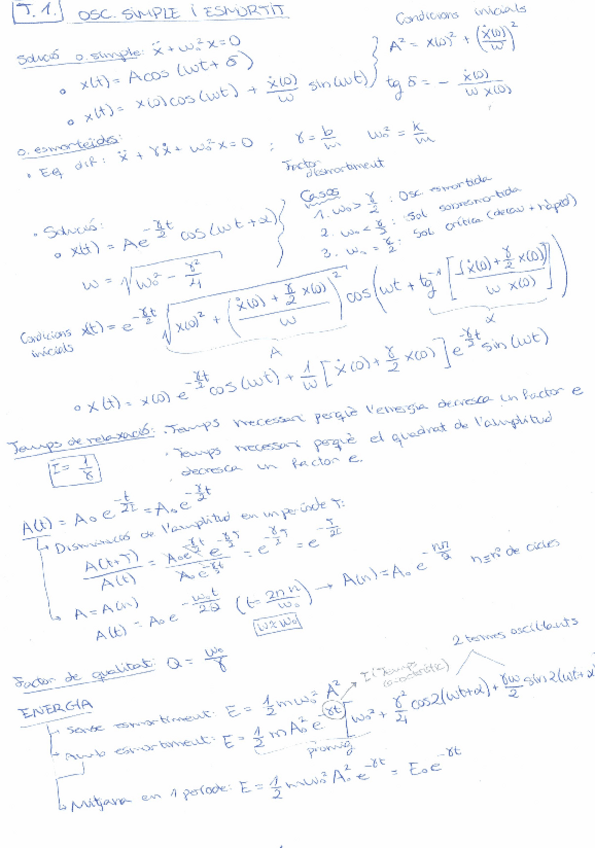 T.1. OSC. SIMPLE I ESMORTIT
Condicions inicials
Solució o. simple: ẍ + ω₀²x = 0
∘ x(t) = A cos (ωt + δ)
A² = x(0)² + (ẋ(0)/ω)²
∘ x(t) = x(0) cos (ωt) + ẋ(0)/ω sin (ωt)
tg δ = - ẋ(0)/(ω x(0))
o. esmorteïdes:
• Eq dif: ẍ + γẋ + ω₀²x = 0 ; γ = b/m ω₀² = k/m
Factor d'esmortiment
Casos
1. ω₀ > γ/2 : Osc esmortida
2. ω₀ < γ/2 : Sol sobresmortida
3. ω₀ = γ/2 : Sol crítica (decau + ràpid)
• Solució:
∘ x(t) = A e^(-γt/2) cos (ωt + α)
ω = √(ω₀² - γ²/4)
Condicions inicials x(t) = e^(-γt/2) √(x(0)² + ((ẋ(0) + γ/2 x(0))/ω)²) cos (ωt + tg⁻¹ [-(ẋ(0) + γ/2 x(0))/(ω x(0))])
A α
∘ x(t) = x(0) e^(-γt/2) cos (ωt) + 1/ω [ẋ(0) + γ/2 x(0)] e^(-γt/2) sin (ωt)
Temps de relaxació: • Temps necessari perquè l'energia decresca un factor e
I = 1/γ
• Temps necessari perquè el quadrat de l'amplitud
decresca un factor e.
A(t) = A₀ e^(-t/2I) = A₀ e^(-γt/2)
Disminució de l'amplitud en un període T:
A(t+T)/A(t) = A₀e^(-γt/2) e^(-γT/2)/A₀e^(-γt/2) = e^(-γT/2) = e^(-T/2I)
A = A(n)
A(t) = A₀ e^(-ω₀t/2Q) (t = 2πn/ω₀) → A(n) = A₀ e^(-nπ/Q) n ≡ nº de cicles
ω ≈ ω₀
Factor de qualitat: Q = ω₀/γ
2 termes oscil·lants
ENERGIA
I (Temps característic)
Sense esmortiment: E = 1/2 m ω₀² A²
Amb esmortiment: E = 1/2 m A₀² e^(-γt) [ω₀² + γ²/4 cos 2(ωt+α) + γω/2 sin 2(ωt+α)
promig
Mitjana en 1 període: E = 1/2 m ω₀² A₀² e^(-γt) = E₀ e^(-γt)